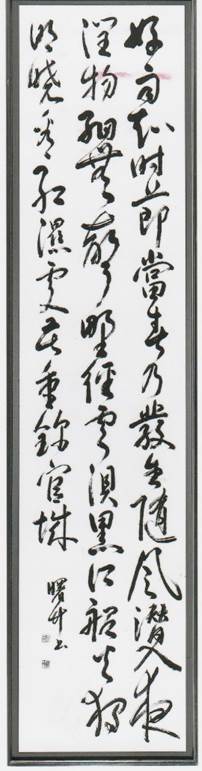 好雨知時節當春乃發生隨風潛入夜
潤物細無聲野徑雲俱黑江船火獨
明曉看紅濕處花重錦官城
曙升书